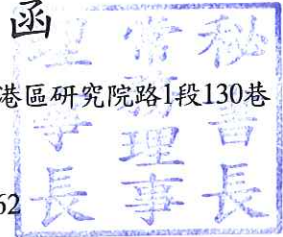 函
港區研究院路1段130巷
62
理事長
常務理事
秘書長